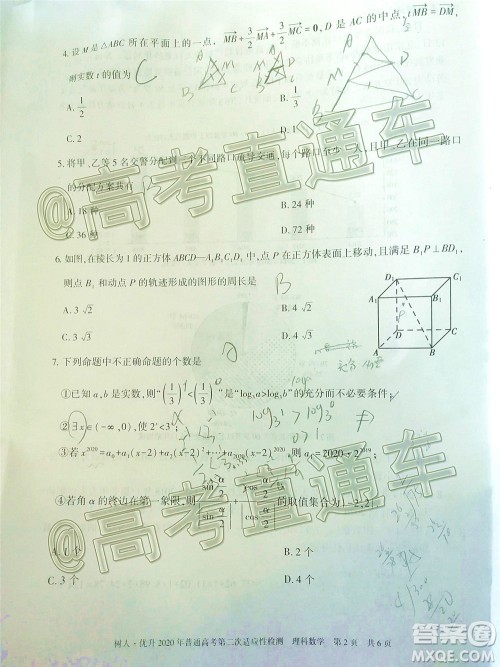 4. 设 M 是△ABC 所在平面上的一点, MB + 3/2 MA + 3/2 MC = 0, D 是 AC 的中点, tMB = DM,
则实数 t 的值为 C
A. 1/2
B. 1/3
C. 2
5. 将甲、乙等 5 名交警分配到 个不同路口疏导交通, 每个路口至少一人, 且甲、乙在同一路口
的分配方案共有
A. 18 种
B. 24 种
C. 36 种
D. 72 种
6. 如图, 在棱长为 1 的正方体 ABCD—A₁B₁C₁D₁ 中, 点 P 在正方体表面上移动, 且满足 B₁P⊥BD₁,
则点 B₁ 和动点 P 的轨迹形成的图形的周长是 B
A. 3√2
B. 4√2
C. 3√3
D. 4√3
D₁ C₁
A₁ B₁
P
D C
A B
7. 下列命题中不正确命题的个数是
①已知 a, b 是实数, 则“(1/3)ᵃ<(1/3)ᵇ”是“log₃a>log₃b”的充分而不必要条件;
②∃x∈(-∞,0), 使 2ˣ<3ˣ;
③若 x²⁰²⁰=a₀+a₁(x-2)+a₂(x-2)²+…+a₂₀₂₀(x-2)²⁰²⁰, 则 a₁=2020×2²⁰¹⁹;
④若角 α 的终边在第一象限, 则 sin α/2 / |sin α/2| + cos α/2 / |cos α/2| 的取值集合为{-2,2}
A. 1 个
B. 2 个
C. 3 个
树人·优升 2020 年普通高考第二次适应性检测 理科数学 第 2 页 共 6 页
@高考直通车
@高考直通车